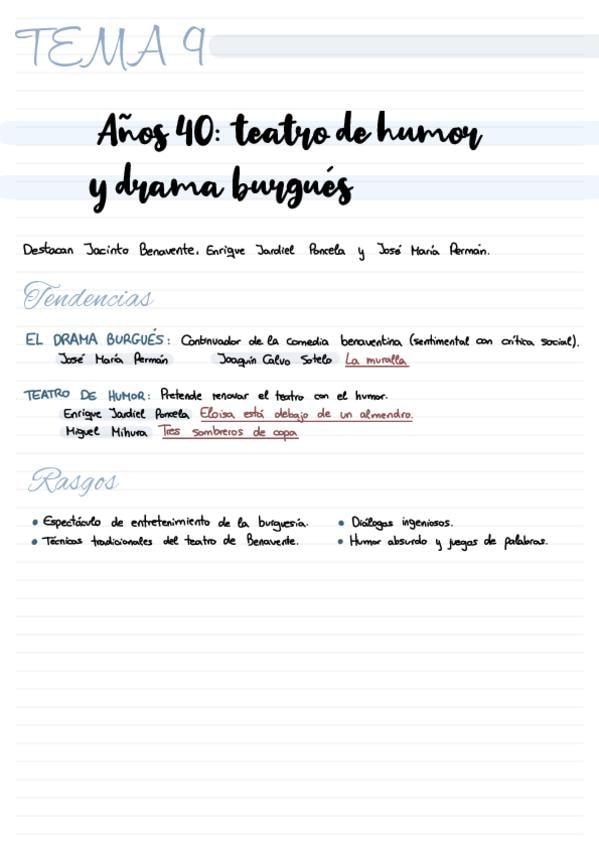 TEMA 9
Años 40: teatro de humor
y drama burgués
Destacan Jacinto Benavente, Enrique Jardiel Poncela y José María Permán.
Tendencias
EL DRAMA BURGUÉS: Continuador de la comedia benaventina (sentimental con crítica social).
José María Permán Joaquín Calvo Sotelo La muralla
TEATRO DE HUMOR: Pretende renovar el teatro con el humor.
Enrique Jardiel Poncela Eloísa está debajo de un almendro.
Miguel Mihura Tres sombreros de copa
Rasgos
• Espectáculo de entretenimiento de la burguesía. • Diálogos ingeniosos.
• Técnicas tradicionales del teatro de Benavente. • Humor absurdo y juegos de palabras.